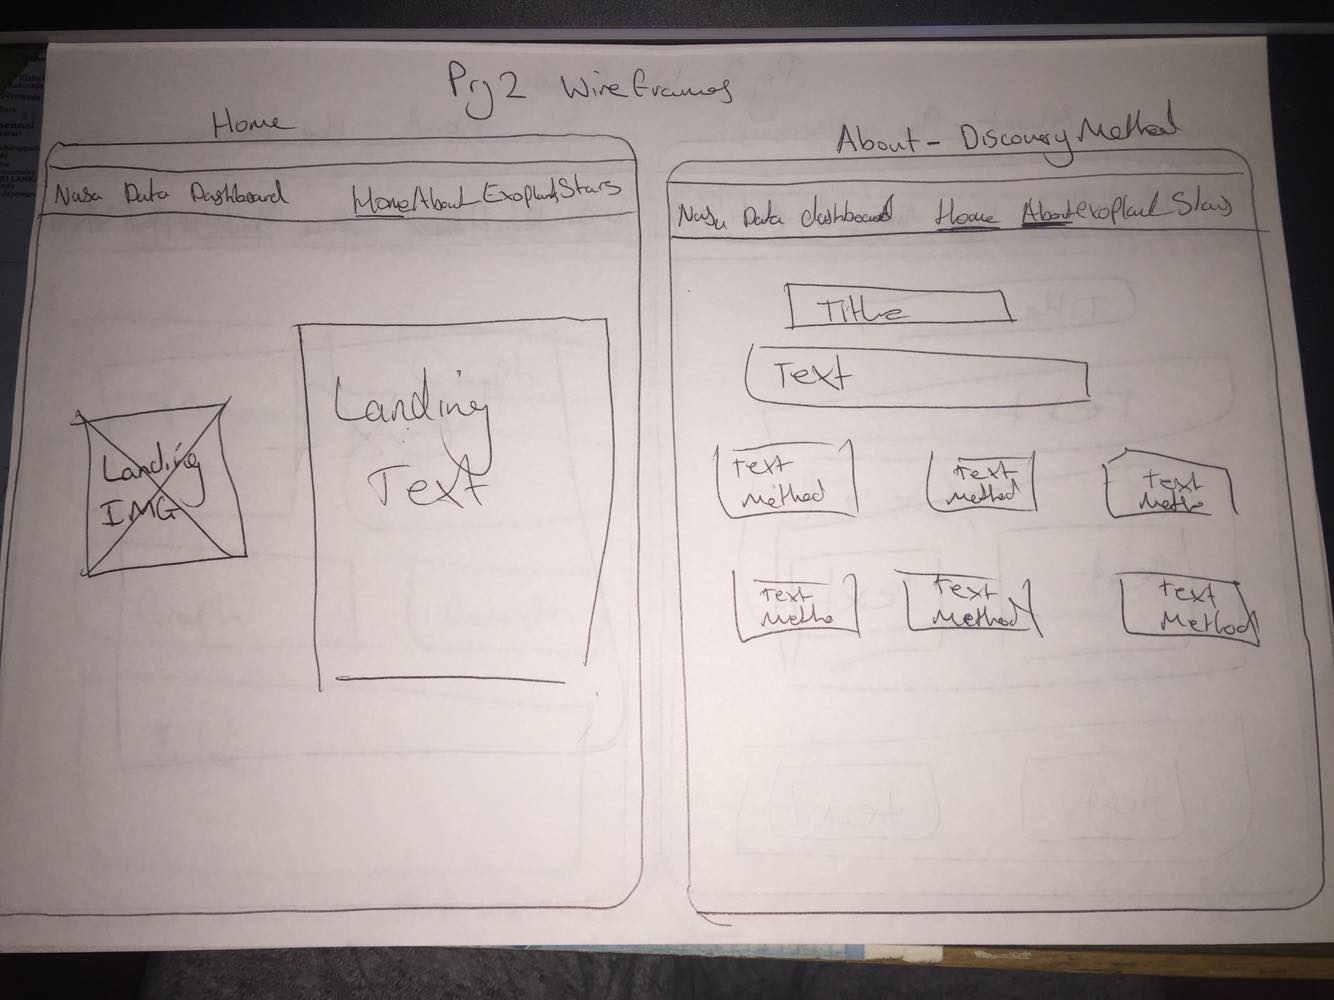 Prj 2 Wireframes
Home
Nasa Data Dashboard Home About Exoplant Stars
Landing
IMG
Landing
Text
About - Discovery Method
Nasa Data dashboard Home About exoplant Stars
Title
Text
Text
Method
Text
Method
Text
Metho
Text
Metho
Text
Method
Text
Method